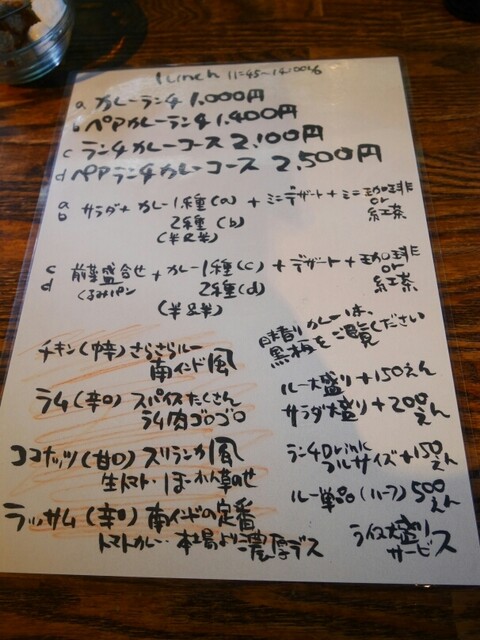 Lunch 11:45~14:00
a カレーランチ 1,000円
b ペアカレーランチ 1,400円
c ランチカレーコース 2,100円
d ペアランチカレーコース 2,500円
a サラダ + カレー1種(a) + ミニデザート + ミニ珈琲
b 2種(b) or
(半&半) 紅茶
c 前菜盛合せ + カレー1種(c) + デザート + 珈琲
d くるみパン 2種(d) or
(半&半) 紅茶
チキン(中辛) さらさらルー
南インド風
ラム(辛口) スパイスたくさん
ラム肉ゴロゴロ
ココナッツ(甘口) スリランカ風
生トマト・ほーれん草のせ
ラッサム(辛口) 南インドの定番
トマトカレー・本場より濃厚デス
日替りカレーは、
黒板をご覧ください
ルー大盛り+150えん
サラダ大盛り+200
えん
ランチDrink
フルサイズ+150
えん
ルー単品(ハーフ)500
えん
ライス大盛り
サービス